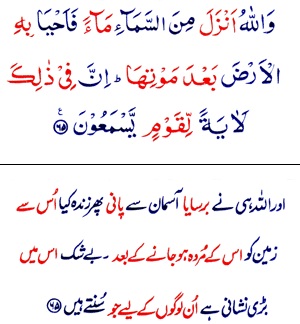 وَاللّٰهُ اَنْزَلَ مِنَ السَّمَآءِ مَآءً فَاَحْيَا بِهِ
الْاَرْضَ بَعْدَ مَوْتِهَا ؕ اِنَّ فِىْ ذٰلِكَ
لَاٰيَةً لِّقَوْمٍ يَّسْمَعُوْنَ ﴿۶۵﴾ ع
اور اللہ ہی نے برسایا آسمان سے پانی پھر زندہ کیا اُس سے
زمین کو اس کے مُردہ ہو جانے کے بعد ۔ بے شک اس میں
بڑی نشانی ہے اُن لوگوں کے لیے جو سُنتے ہیں ﴿۶۵﴾